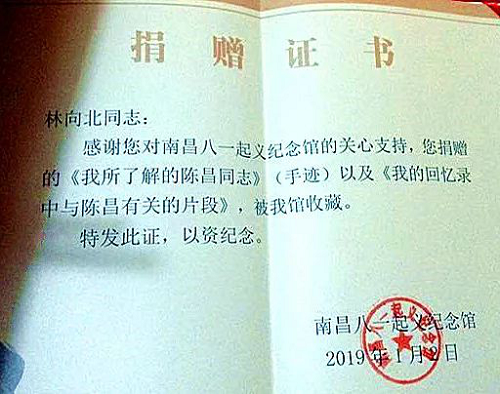 捐赠证书
林向北同志：
感谢您对南昌八一起义纪念馆的关心支持，您捐赠
的《我所了解的陈昌同志》（手迹）以及《我的回忆录
中与陈昌有关的片段》，被我馆收藏。
特发此证，以资纪念。
南昌八一起义纪念馆
2019年1月2日